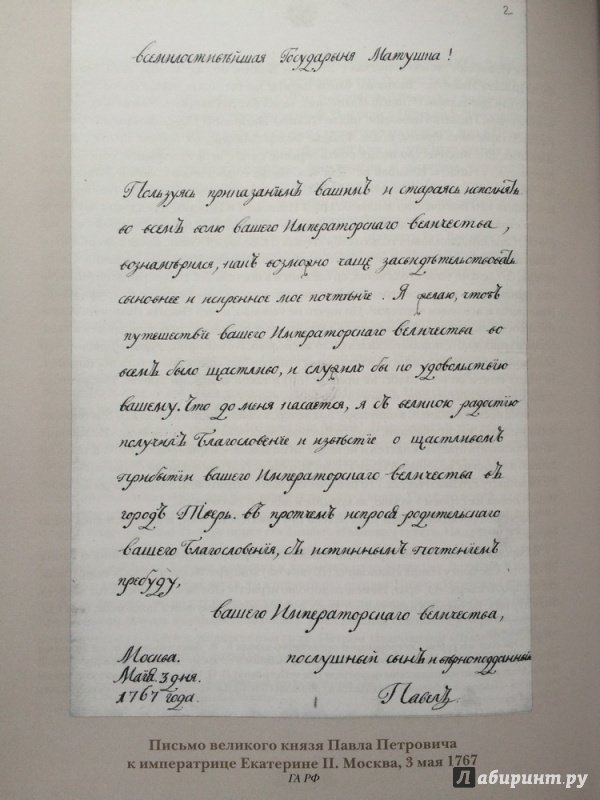 2
всемилостивѣйшая Государыня Матушка!
Пользуясь приказанїемъ вашимъ и стараясь исполнять
во всемъ волю вашего Императорскаго величества,
вознамѣрился, какъ возможно чаще засвидѣтельствовать
сыновнее и искренное мое почтѣнїе. Я желаю, чтобъ
путешествїе вашего Императорскаго величества во
всемъ было щастливо, и служило бы по удовольствїю
вашему. Что до меня касается, я съ великою радостїю
получилъ Благословенїе и извѣстїе о щастливомъ
прибытїи вашего Императорскаго величества въ
городъ Тверь. въ протчемъ испрося родительскаго
вашего Благословенїя, съ истиннымъ почтенїемъ
пребуду,
вашего Императорскаго величества,
послушный сынъ и вѣрноподданный
Москва.
Маїя 3 дня.
1767 года.
Павелъ.
Письмо великого князя Павла Петровича
к императрице Екатерине II. Москва, 3 мая 1767
ГА РФ
Лабиринт.ру